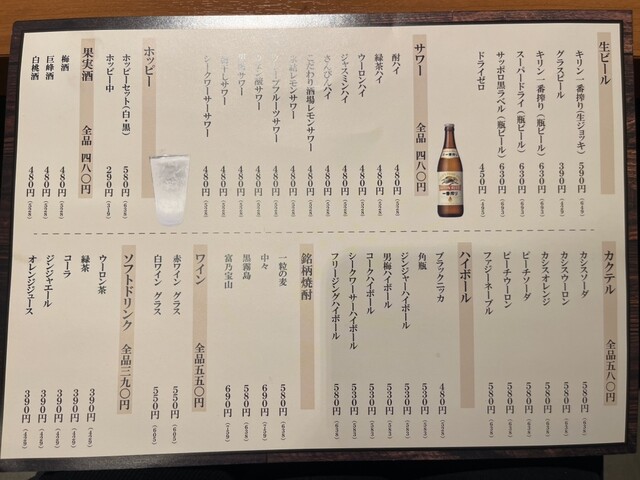 生ビール
キリン一番搾り(生ジョッキ) 590円
グラスビール 390円
キリン一番搾り(瓶ビール) 630円
スーパードライ(瓶ビール) 630円
サッポロ黒ラベル(瓶ビール) 630円
ドライゼロ 450円
サワー 全品 四八〇円
酎ハイ 480円
緑茶ハイ 480円
ウーロンハイ 480円
ジャスミンハイ 480円
さんぴんハイ 480円
こだわり酒場レモンサワー 480円
レモンサワー 480円
フルーツサワー 480円
サワー 480円
サワー 480円
梅干しサワー 480円
シークワーサーサワー 480円
一番搾り
ホッピー
ホッピーセット(白・黒) 580円
ホッピー中 290円
果実酒 全品 四八〇円
梅酒 480円
巨峰酒 480円
白桃酒 480円
カクテル 全品 五八〇円
カシスソーダ 580円
カシスウーロン 580円
カシスオレンジ 580円
ピーチソーダ 580円
ピーチウーロン 580円
ファジーネーブル 580円
ハイボール
ブラックニッカ 480円
角瓶 530円
ジンジャーハイボール 530円
男梅ハイボール 530円
コークハイボール 530円
シークワーサーハイボール 530円
フリージングハイボール 580円
銘柄焼酎
一粒の麦 580円
中々 690円
黒霧島 580円
富乃宝山 690円
ワイン 全品 五五〇円
赤ワイン グラス 550円
白ワイン グラス 550円
ソフトドリンク 全品 三九〇円
ウーロン茶 390円
緑茶 390円
コーラ 390円
ジンジャエール 390円
オレンジジュース 390円